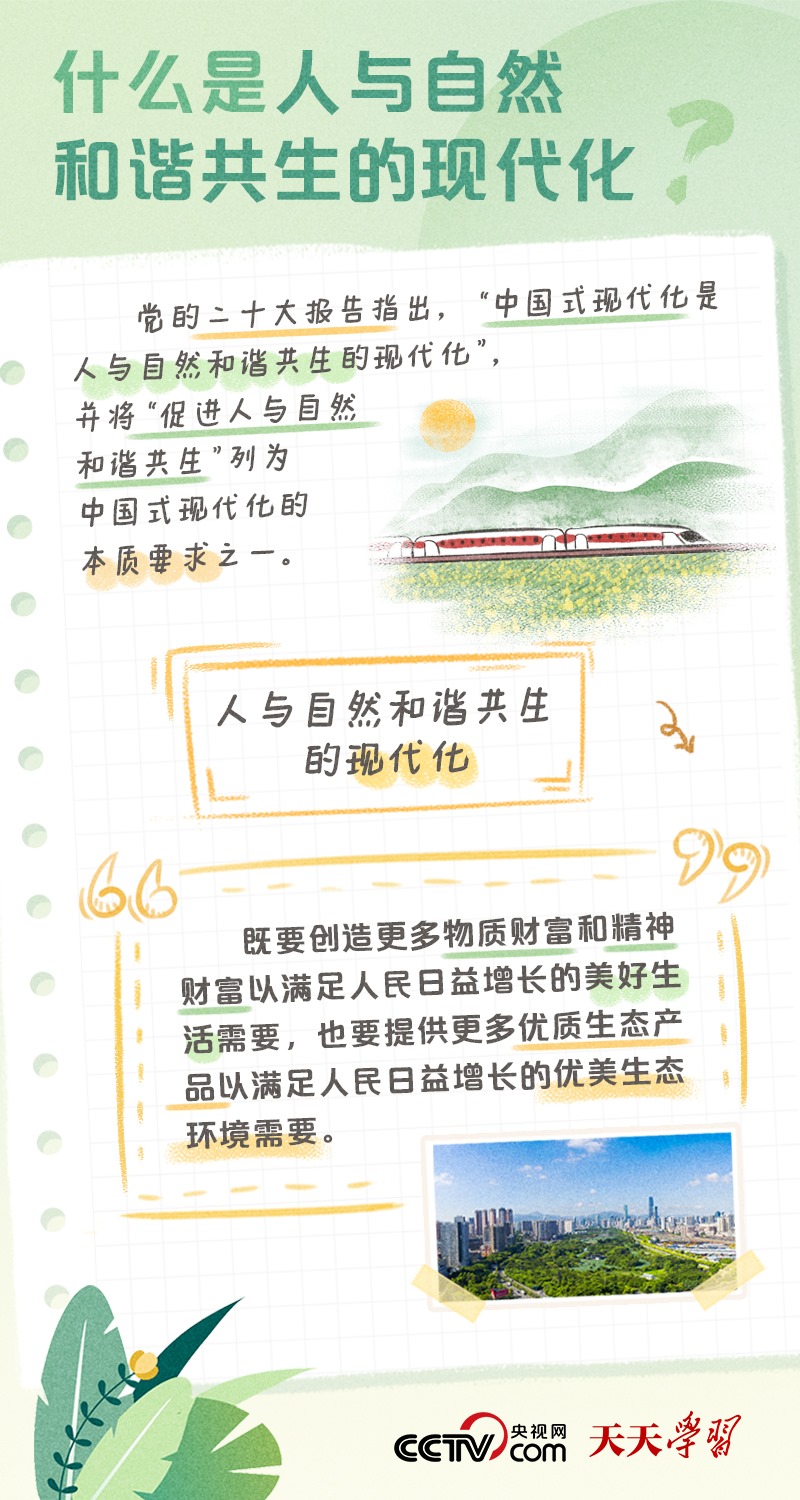 什么是人与自然
和谐共生的现代化？
党的二十大报告指出，“中国式现代化是
人与自然和谐共生的现代化”，
并将“促进人与自然
和谐共生”列为
中国式现代化的
本质要求之一。
人与自然和谐共生
的现代化
既要创造更多物质财富和精神
财富以满足人民日益增长的美好生
活需要，也要提供更多优质生态产
品以满足人民日益增长的优美生态
环境需要。
CCTV.com 央视网
天天学習